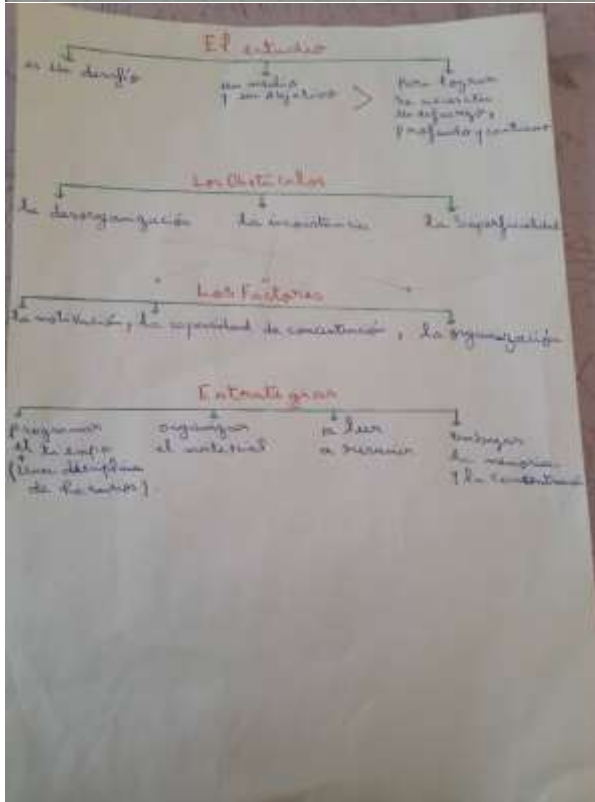 El estudio
es un desafío
un medio
y un objetivo
>
Para lograr
se necesita
un esfuerzo,
profundo y continuo
Los Obstáculos
la desorganización
la inconstancia
la superficialidad
Los Factores
la motivación, la capacidad de concentración, la organización
Estrategias
programar
el tiempo
(una disciplina
de horarios).
organizar
el material
a leer
a resumir
la memoria
y la concentración